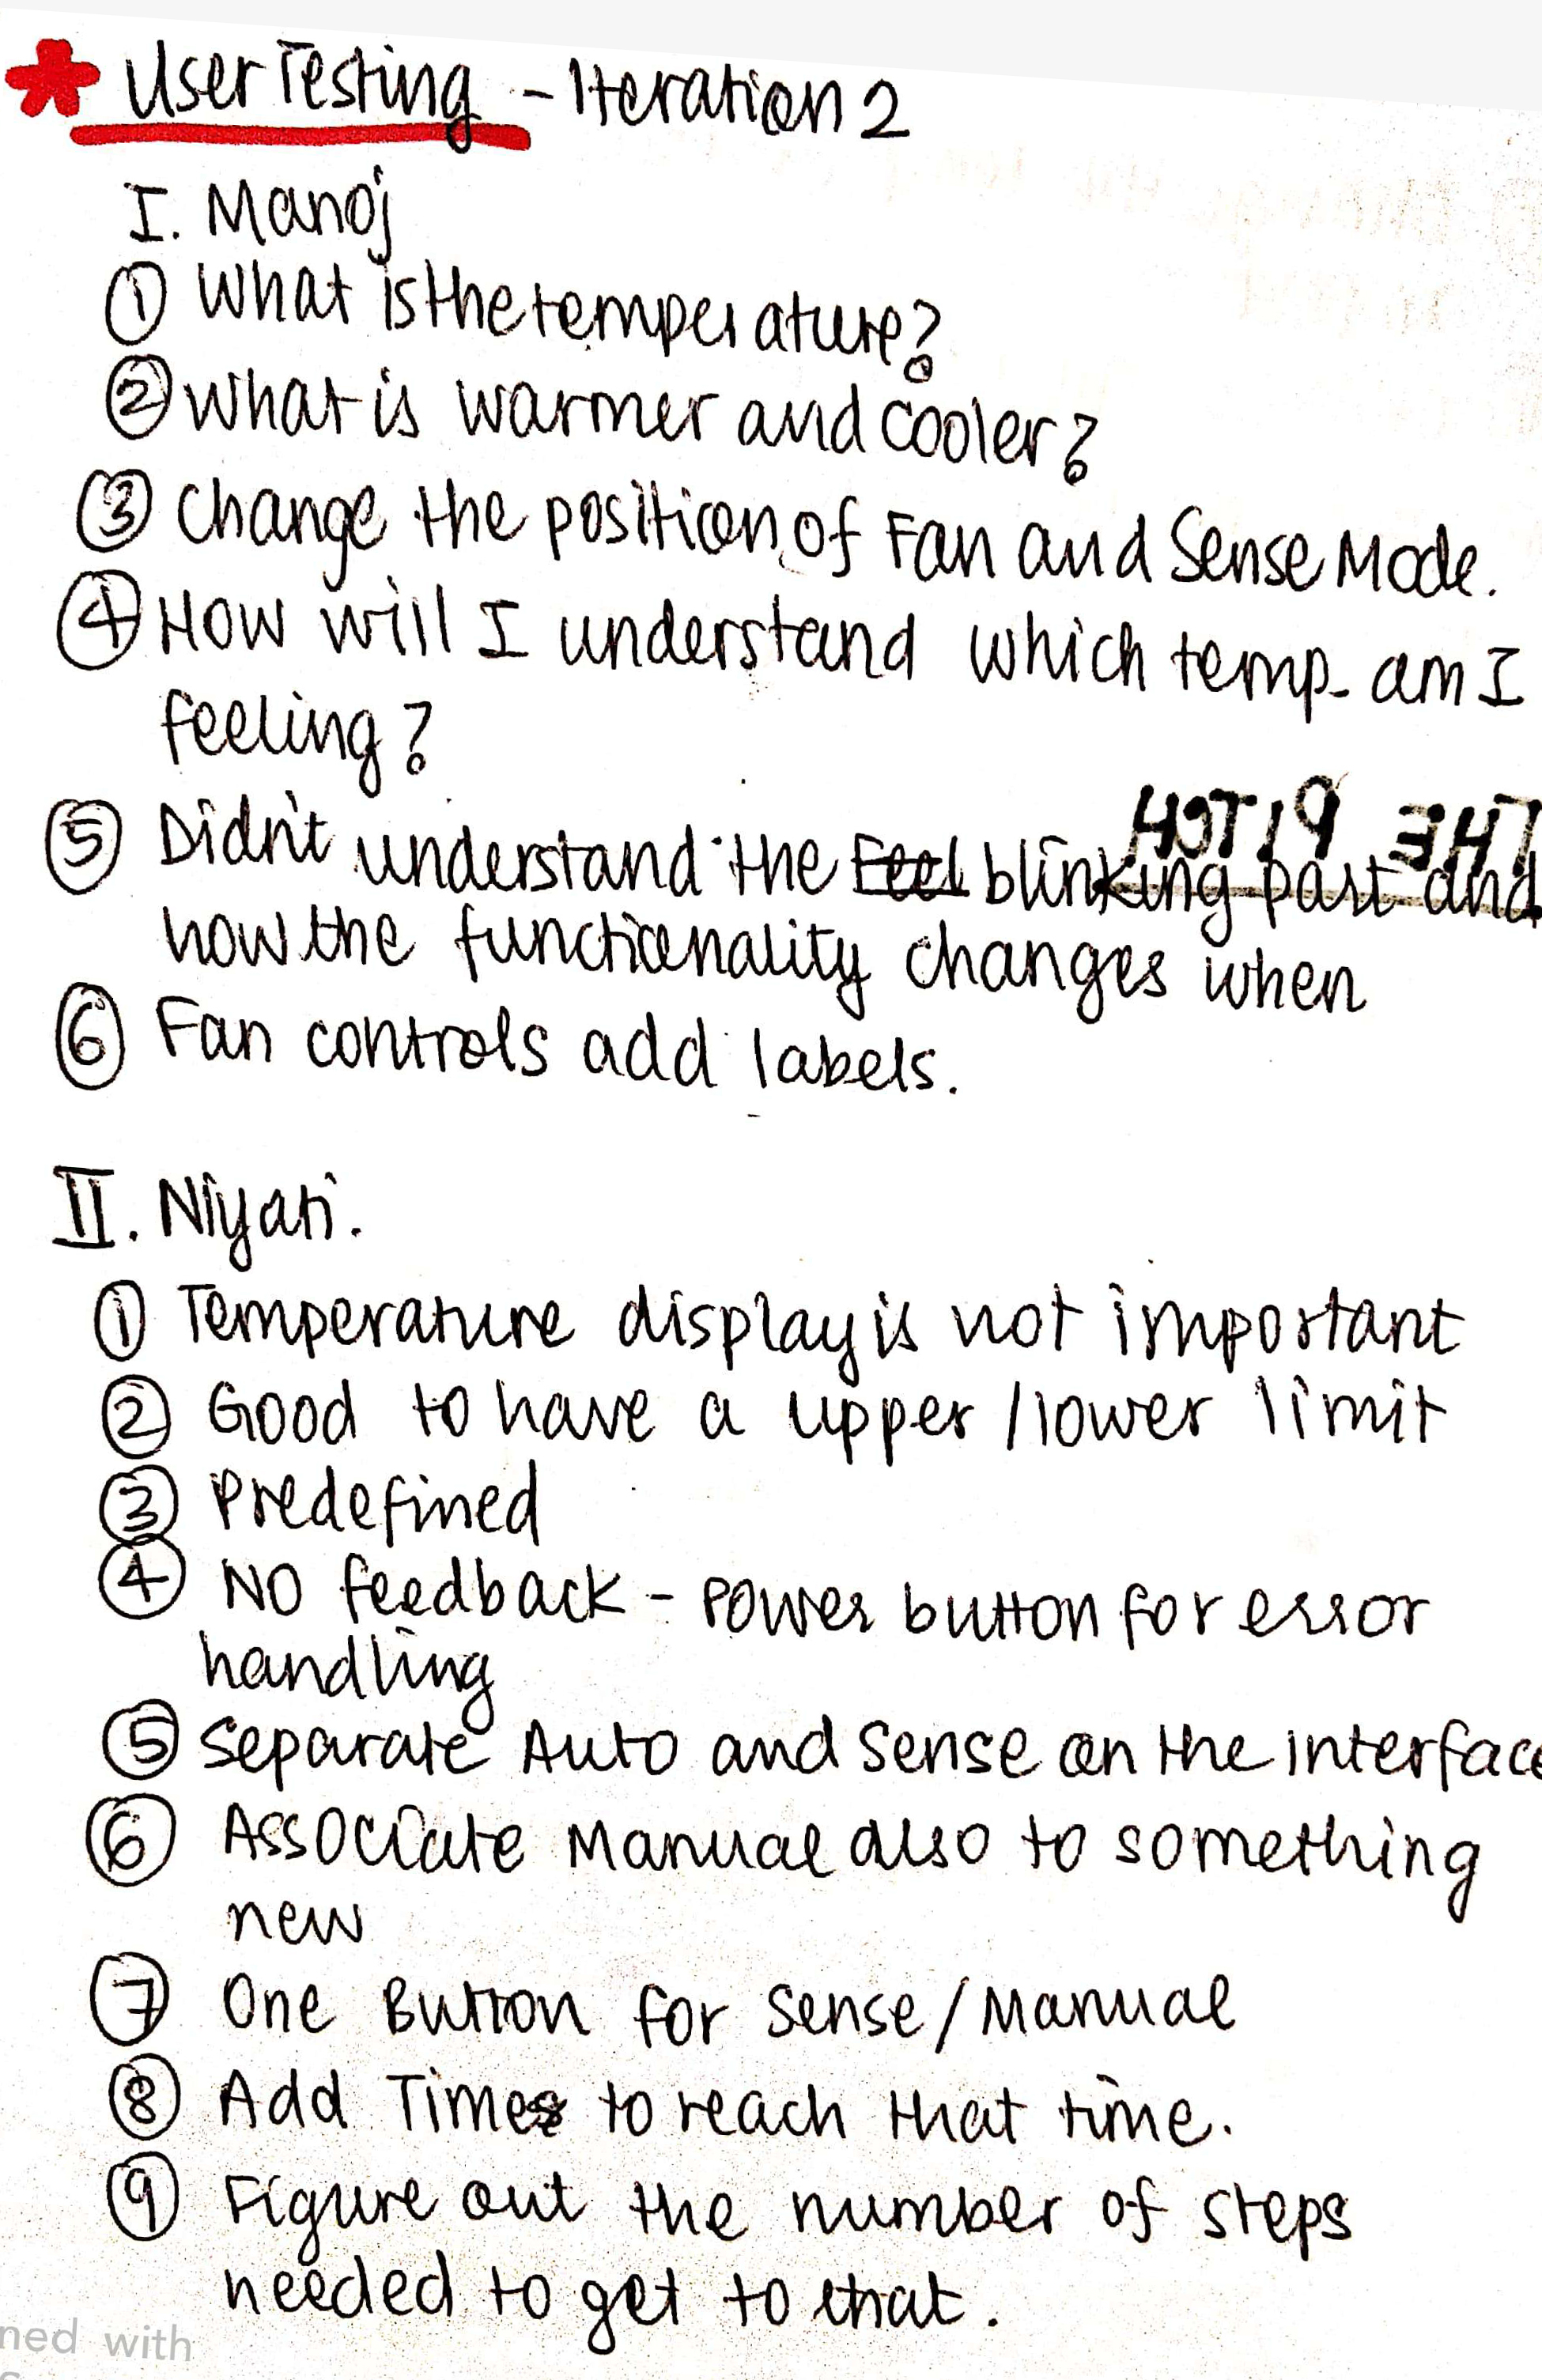 * User Testing - Iteration 2
I. Manoj
① What is the temperature?
② What is warmer and cooler?
③ Change the position of Fan and Sense Mode.
④ How will I understand which temp. am I
feeling?
⑤ Didn't understand the Feel blinking part and
how the functionality changes when
⑥ Fan controls add labels.
II. Niyati.
① Temperature display is not important
② Good to have a upper/lower limit
③ Predefined
④ No feedback - Power button for error
handling
⑤ Separate Auto and Sense on the interface
⑥ Associate Manual also to something
new
⑦ One Button for Sense/Manual
⑧ Add Times to reach that time.
⑨ Figure out the number of steps
needed to get to that.
ned with